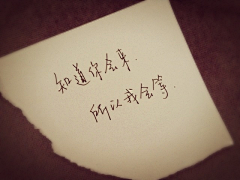 知道你会来.
所以我会等.